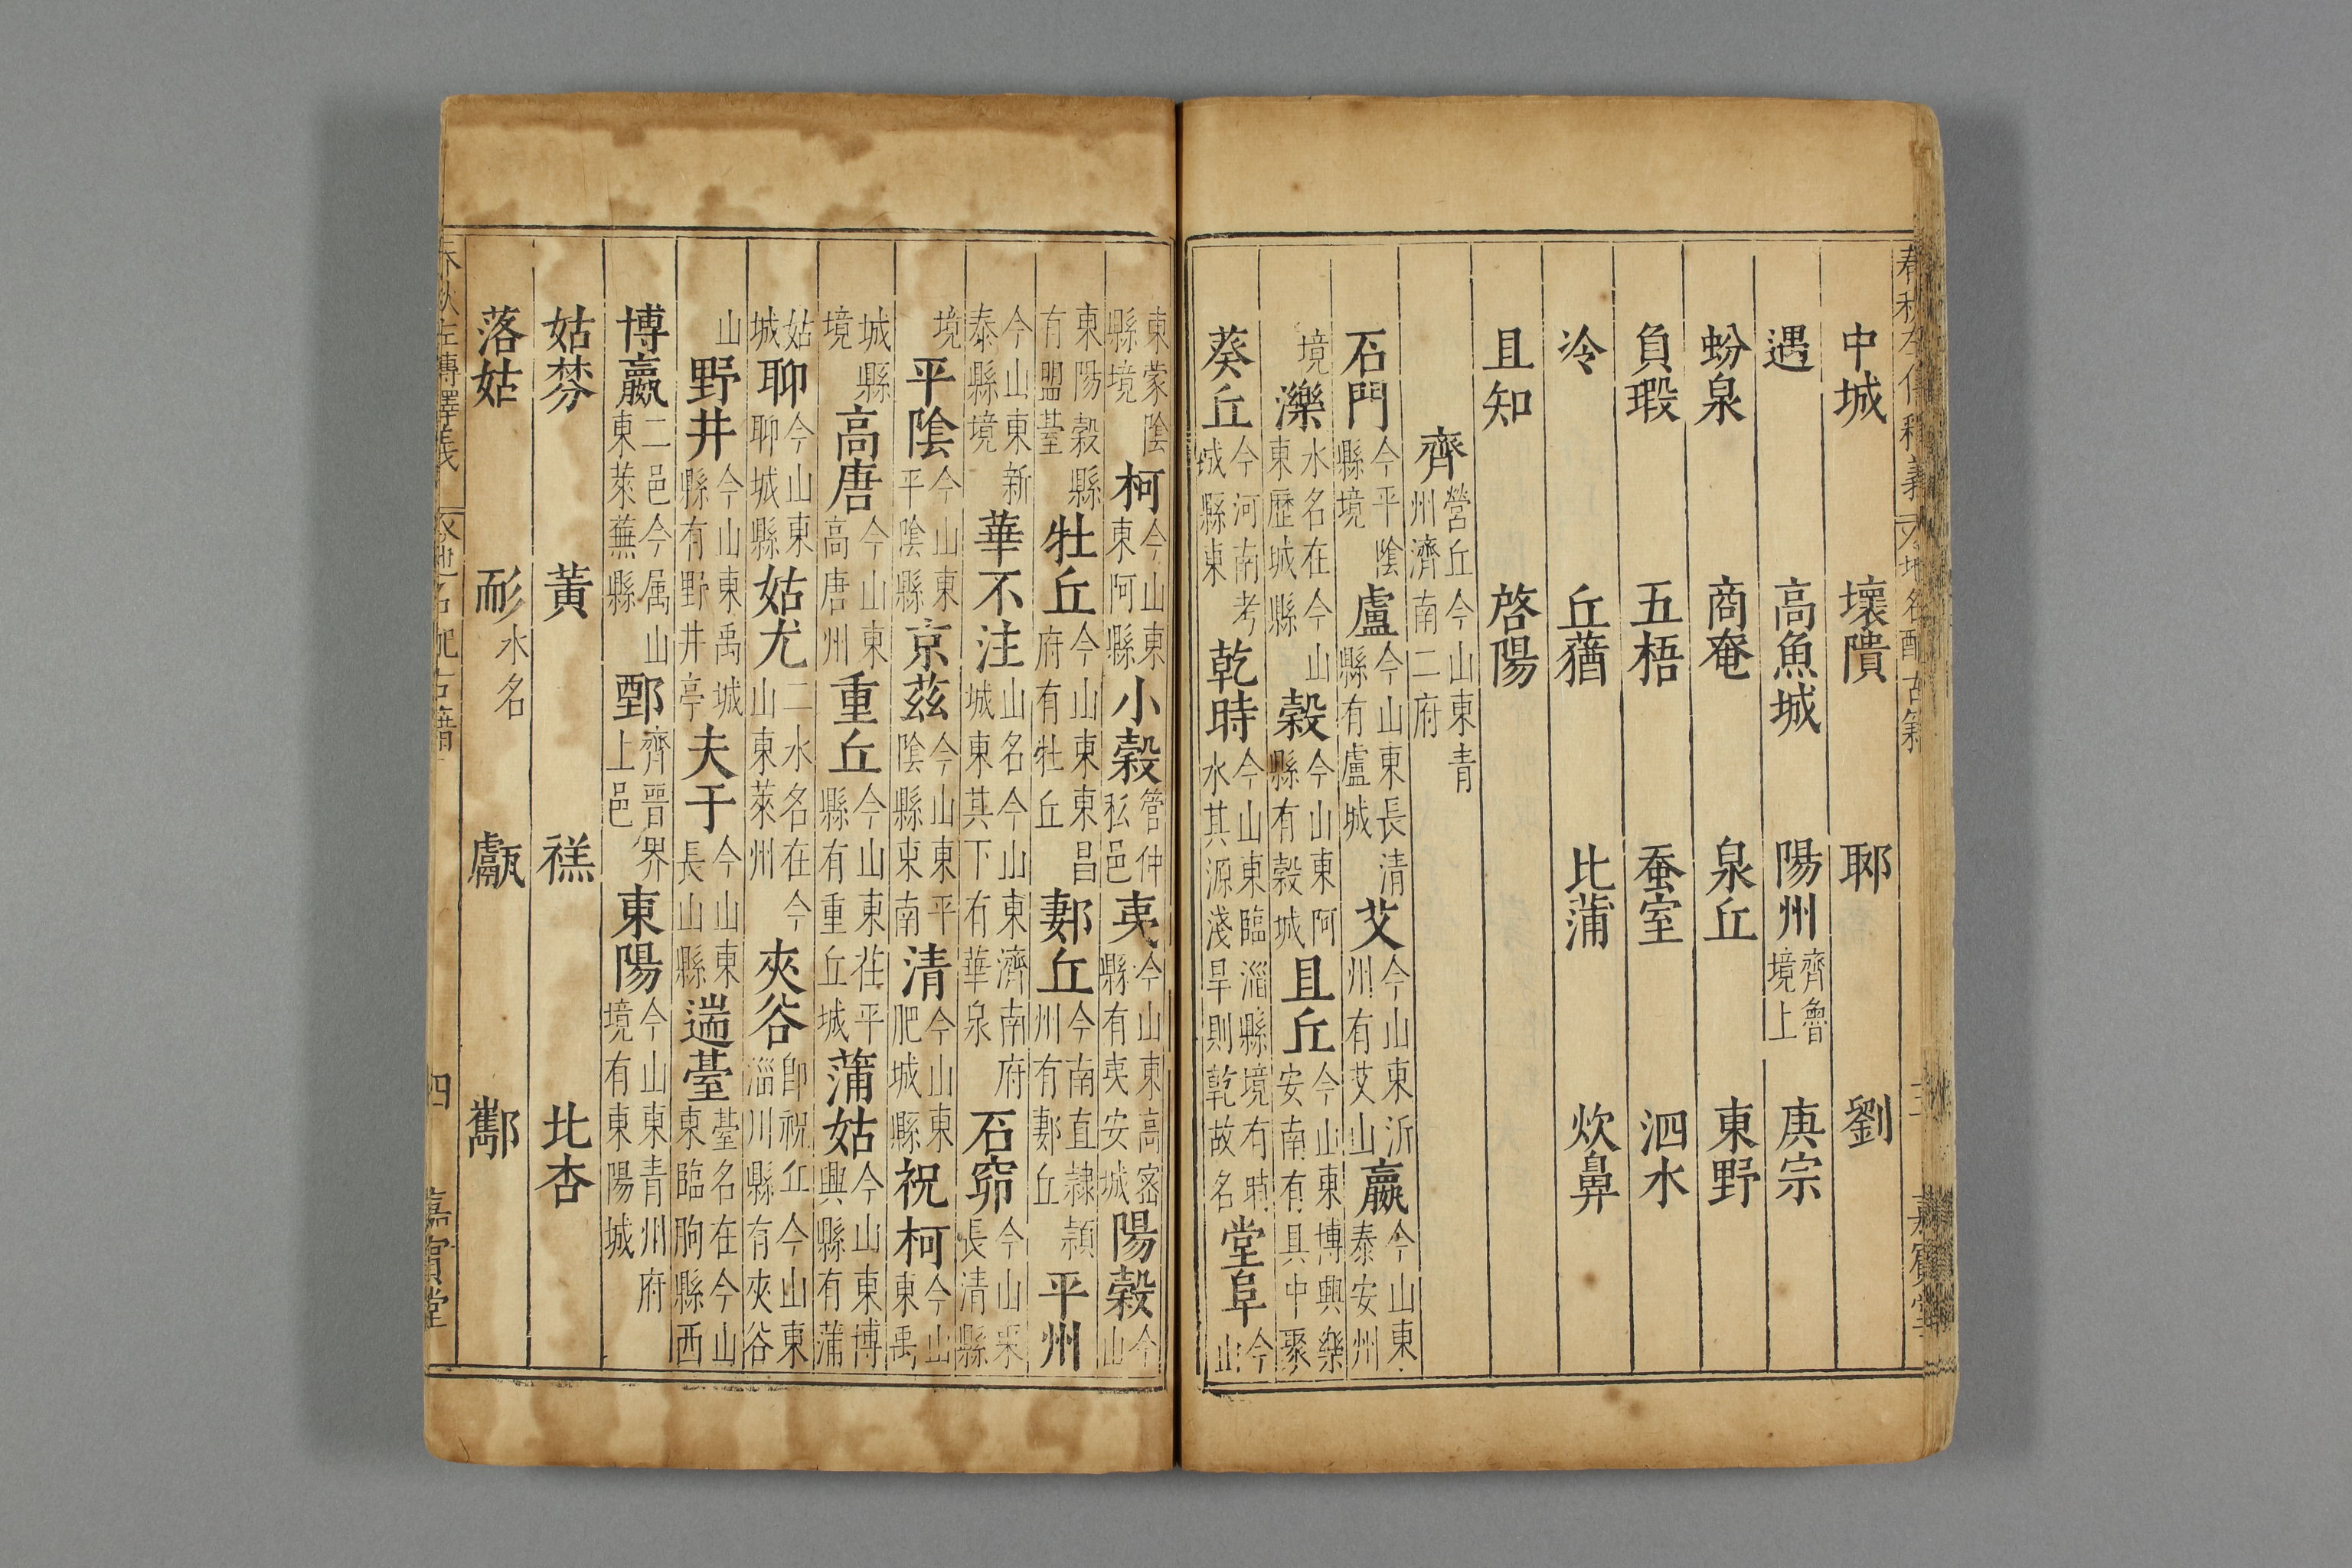 中城　壞隤　郰　劉
遇　高魚城　陽州齊魯境上　庚宗
蚡泉　商奄　泉丘　東野
負瑕　五梧　蚕室　泗水
泠　丘蕕　比蒲　炊鼻
且知　啓陽
齊營丘今山東青州濟南二府
石門今平隂縣境　盧今山東長清縣有盧城　艾今山東沂州有艾山　嬴今山東泰安州
境　濼水名在今山東歷城縣　穀今山東阿縣有穀城　且丘今山東博興樂安南有具中聚
葵丘今河南考城縣東　乾時今山東臨淄縣境有時水其源淺旱則乾故名　堂阜今山
東蒙隂縣境　柯今山東東阿縣　小穀管仲私邑　夷今山東高密縣有夷安城　陽穀今山
東陽穀縣有盟臺　牡丘今山東東昌府有牡丘　郪丘今南直隷頴州有郪丘　平州
今山東新泰縣境　華不注山名今山東濟南府城東其下有華泉　石窌今山東長清縣
境　平隂今山東平隂縣　京茲今山東平隂縣東南　清今山東肥城縣　祝柯今山東禹
城縣境　高唐今山東高唐州　重丘今山東茌平縣有重丘城　蒲姑今山東博興縣有蒲
姑城　聊今山東聊城縣　姑尤二水名在今山東萊州　夾谷即祝丘今山東淄川縣有夾谷
山　野井今山東禹城縣有野井亭　夫于今山東長山縣　遄臺臺名在今山東臨朐縣西
博嬴二邑今属山東萊蕪縣　鄄齊晉界上邑　東陽今山東青州府境有東陽城
姑棼　黃　禚　北杏
落姑　耏水名　甗　酅
春秋左傳釋義　地名配古籍　四　嘉賓堂